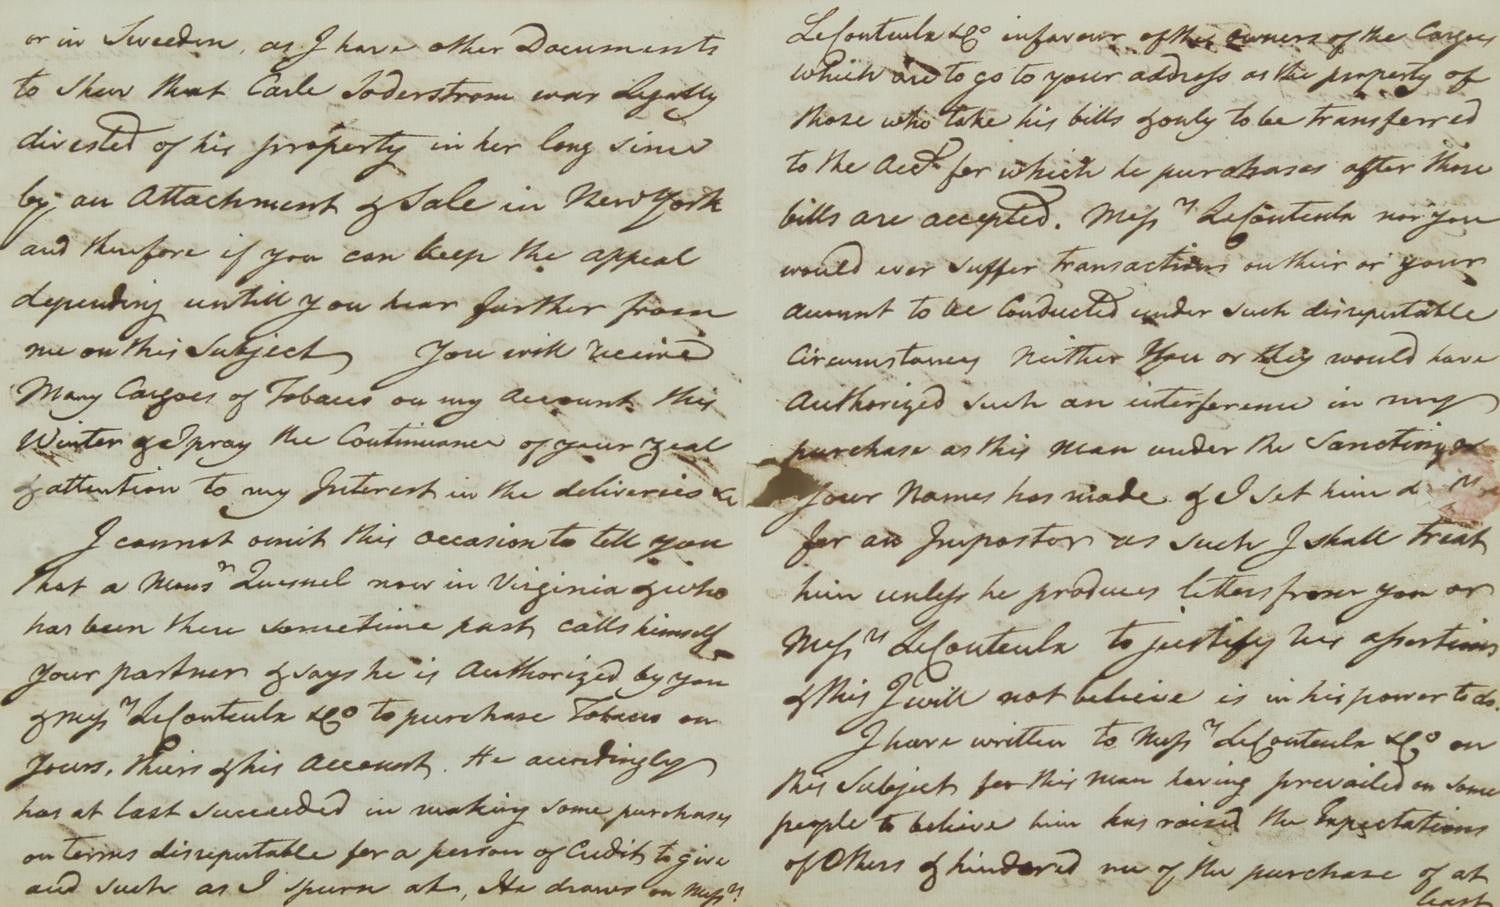 or in Sweeden, as I have other Documents
to shew that Carle Soderstrom was Legally
divested of his property in her long since
by an Attachment & Sale in New York
and therefore if you can keep the appeal
depending untill you hear further from
me on this Subject You will receive
Many Cargoes of Tobacco on my Account this
Winter & I pray the Continuance of your zeal
& attention to my Interest in the deliveries &c
I cannot omit this occasion to tell you
that a Monsr Quesnel now in Virginia & who
has been there sometime past, calls himself
your partner & says he is Authorized by you
& Messrs LeCouteulx & Co to purchase Tobacco on
yours, theirs & his Account. He accordingly
has at last succeeded in making some purchases
on terms disreputable for a person of Credit to give
and such as I spurn at, He draws on Messrs
LeCouteulx & Co in favour of the owners of the Cargoes
which are to go to your address as the property of
those who take his bills & only to be transferred
to the Acct for which he purchases after those
bills are accepted. Messrs LeCouteulx nor you
would ever suffer transactions on their or your
account to be Conducted under such disreputable
Circumstances Neither You or they would have
Authorized such an interference in my
purchase as this Man under the Sanction of
your Names has made & I set him d
for an Impostor as such I shall treat
him unless he produces letters from you or
Messrs LeCouteulx to justify his assertions
& this I will not believe is in his power to do.
I have written to Messrs LeCouteulx & Co on
this Subject for this Man having prevailed on some
people to believe him has raised the Expectations
of Others & hindered me of the purchase of at
least